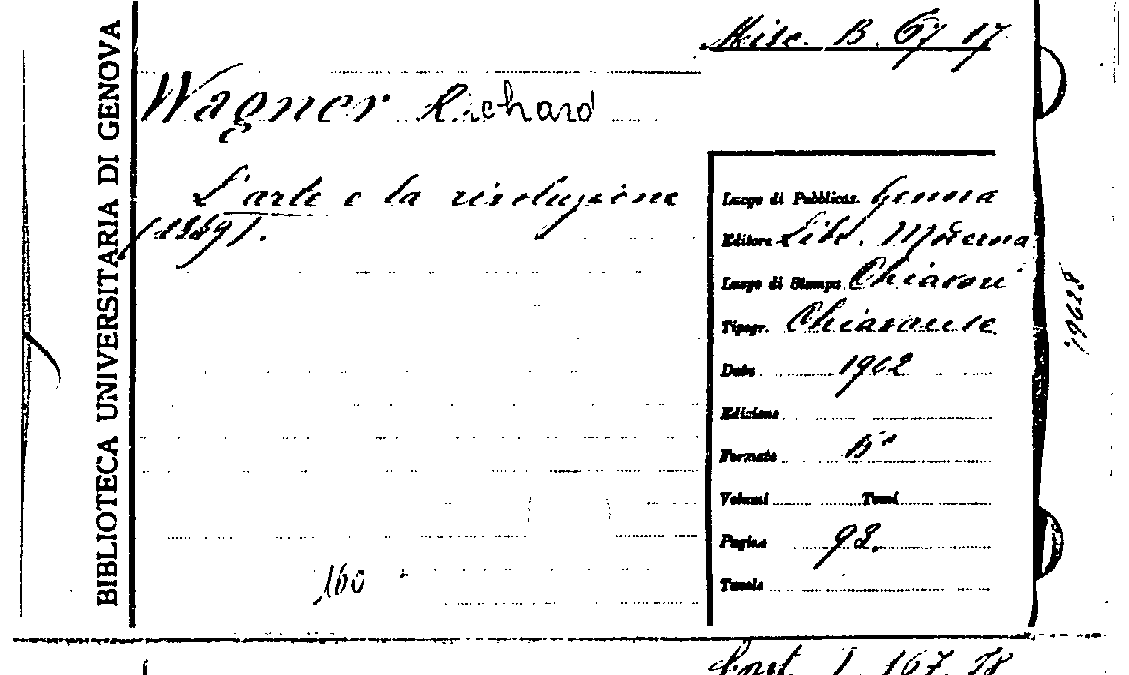 BIBLIOTECA UNIVERSITARIA DI GENOVA
Misc. B. 67 17
Wagner Richard
L'arte e la rivoluzione
(1849).
Luogo di Pubblicaz. Genova
Editore Lib. Moderna
Luogo di Stampa Chiavari
Tipogr. Chiavarese
Data 1902
Edizione
Formato
Volumi Tomi
Pagine 93.
Tavole
160
19628